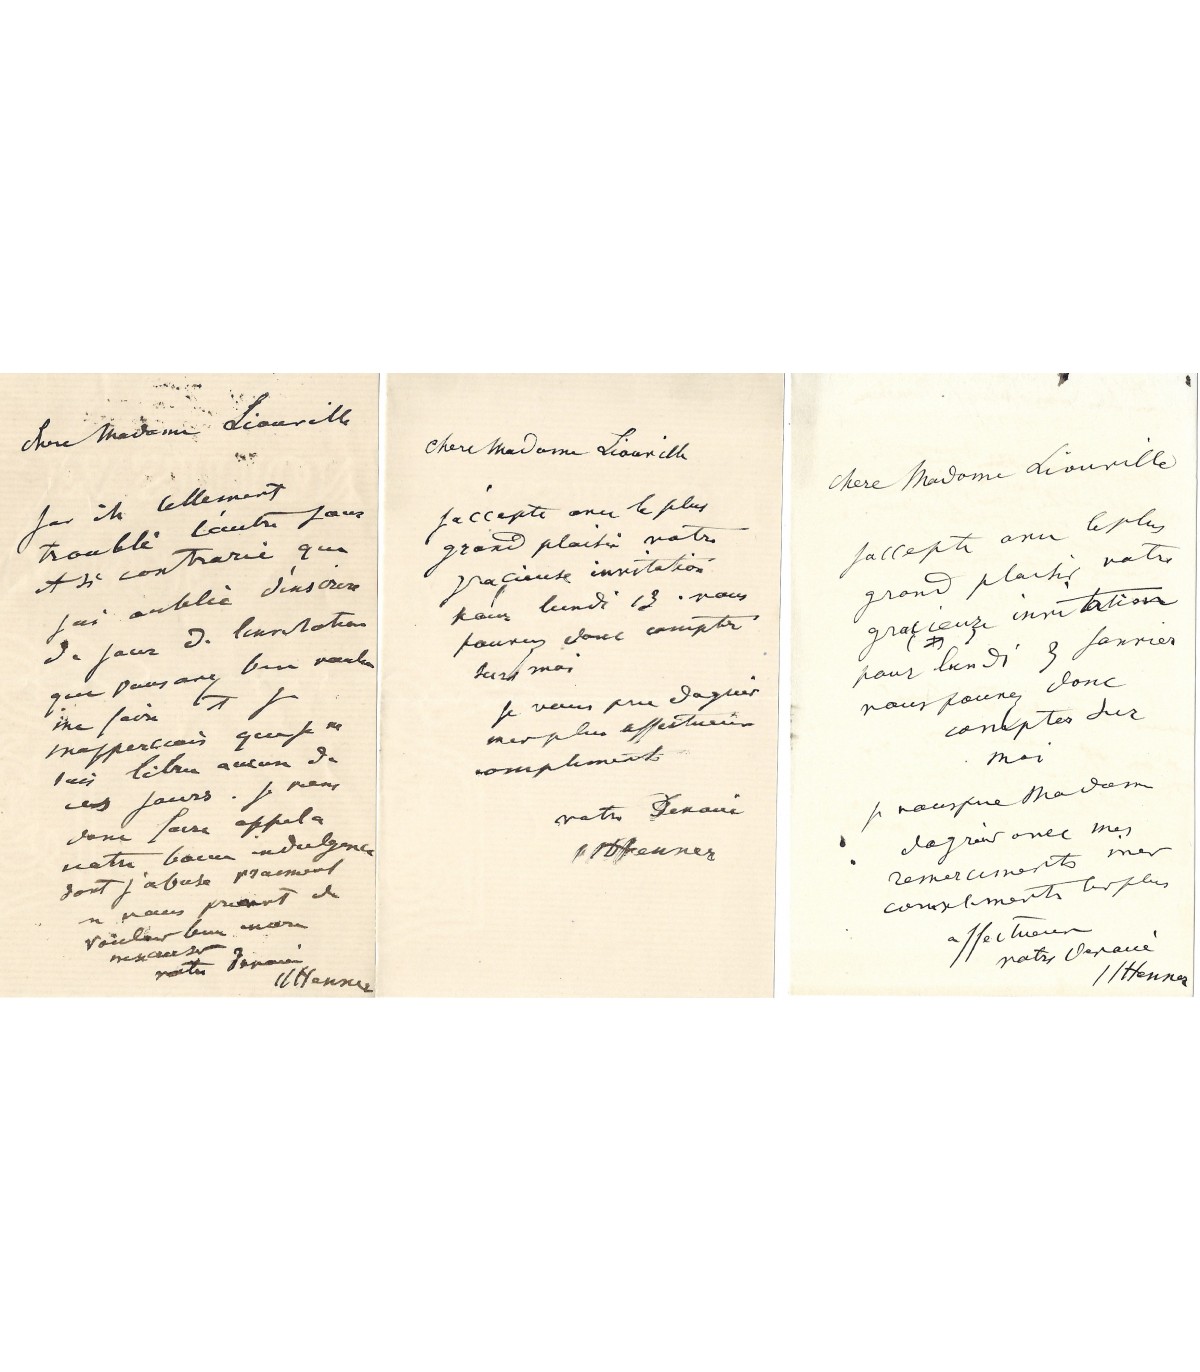 chere Madame Liouville
j'ai été tellement
troublé l'autre jour
et si contrarié que
j'ai oublié d'inscrire
le jour de l'invitation
que vous avez bien voulu
me faire et je
m'apperçois que je ne
suis libre aucun de
ces jours. je viens
donc faire appel a
votre bonne indulgence
dont j'abuse vraiment
en vous priant de
vouloir bien
m'excuser
votre devoué
JJHenner
chere Madame Liouville
j'accepte avec le plus
grand plaisir votre
gracieuse invitation
pour lundi 13. vous
pouvez donc compter
sur moi
je vous prie d'agréer
mes plus affectueux
compliments
votre Devoué
JJHenner
chere Madame Liouville
j'accepte avec le plus
grand plaisir votre
gracieuze invitation
pour lundi 3 Janvier
vous pouvez donc
compter sur
moi
je vous prie Madame
d'agréer avec mes
remerciments mes
compliments les plus
affectueux
votre devoué
JJHenner